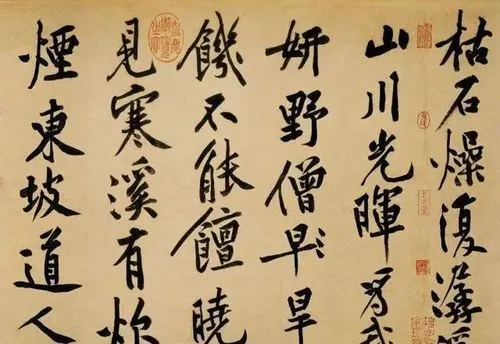 枯石燥復潺
山川光暉為我
妍野僧早旱
饑不能饘曉
見寒溪有炊
煙東坡道人